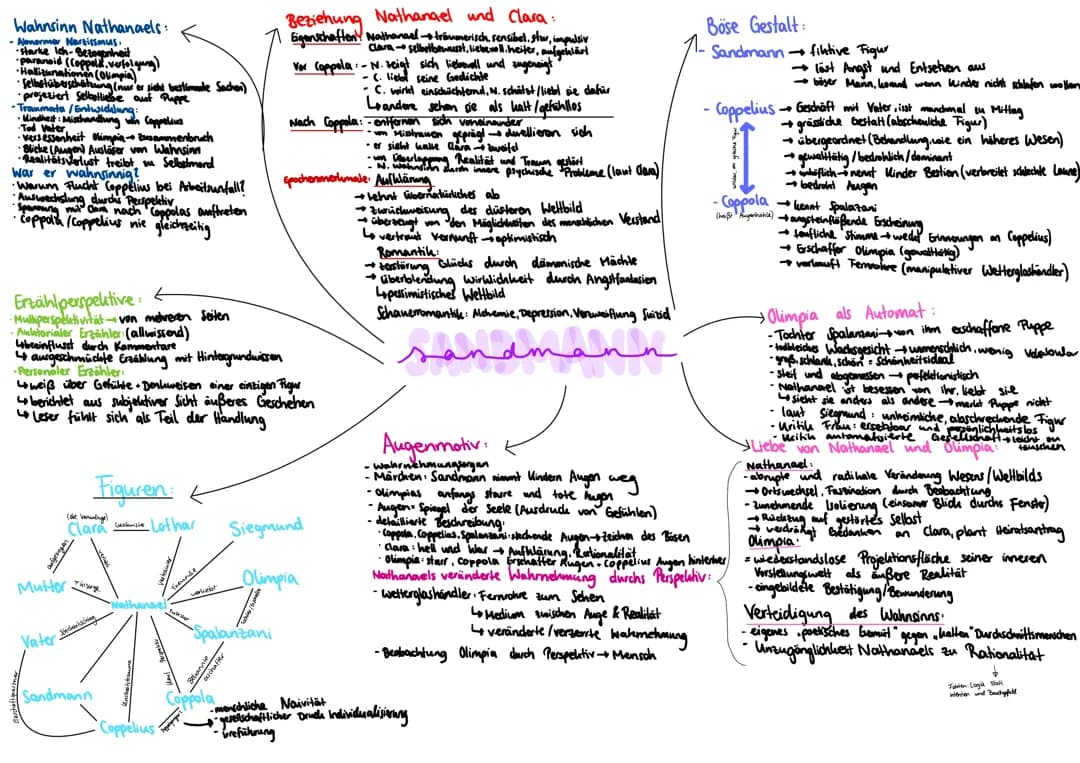 Wahnsinn Nathanaels:
- Abnormer Narzissmus:
· starke Ich-Bezogenheit
· paranoid (Coppola, verfolgung)
· Halluzinationen (Olimpia)
· Selbstüberschätzung (nur er sieht bestimmte Sachen)
· projeziert Selbstliebe auf Puppe
- Traumata / Entwicklung:
· Kindheit: Misshandlung von Coppelius
· Tod Vater
· Versessenheit Olimpia → Zusammenbruch
· Blicke (Augen) Auslöser von Wahnsinn
· Realitätsverlust treibt zu Selbstmord
War er wahnsinnig?
· Warum Flucht Coppelius bei Arbeitsunfall?
· Auswechslung durch Perspektiv
· Spannung mit Clara nach Coppolas auftreten
· Coppola/Coppelius nie gleichzeitig
Beziehung Nathanael und Clara:
Eigenschaften: Nathanael → träumerisch, sensibel, stur, impulsiv
Clara → selbstbewusst, liebevoll, heiter, aufgeklärt
Vor Coppola: - N. zeigt sich liebevoll und zugeneigt
- C. liebt seine Gedichte
- C. wirkt einschüchternd, N. schätzt/liebt sie dafür
↳ andere sehen sie als kalt/gefühllos
Nach Coppola: - entfernen sich voneinander
- von Misstrauen geprägt → duellieren sich
- er sieht kalte Clara → zweifel
- von Überlappung Realität und Traum gestört
- N. Wahnsinn durch innere psychische Probleme (laut Clara)
Epochenmerkmale: Aufklärung
→ Lehnt übernatürliches ab
→ Zurückweisung des düsteren Weltbild
→ überzeugt von den Möglichkeiten des menschlichen Verstand
↳ vertraut Vernunft → optimistisch
Romantik:
→ Zerstörung Glücks durch dämonische Mächte
→ Überblendung Wirklichkeit durch Angstfantasien
↳ pessimistisches Weltbild
Schauerromantik: Alchemie, Depression, Verzweiflung Suizid
Böse Gestalt:
- Sandmann → fiktive Figur
→ löst Angst und Entsetzen aus
→ böser Mann, kommt wenn Kinder nicht schlafen wollen
- Coppelius → Geschäft mit Vater, isst manchmal zu Mittag
→ grässliche Gestalt (abscheuliche Figur)
→ übergeordnet (Behandlung wie ein höheres Wesen)
→ gewalttätig / bedrohlich / dominant
→ unhöflich → nennt Kinder Bestien (verbreitet schlechte Laune)
→ bedroht Augen
- Coppola → kennt Spalanzani
(heißt Augenhöhle)
→ angsteinflößende Erscheinung
→ teuflische Stimme → weckt Erinnerungen an Coppelius)
→ Erschaffer Olimpia (gewalttätig)
→ verkauft Fernrohre (manipulativer Wetterglashändler)
Erzählperspektive:
· Multiperspektivität → von mehreren Seiten
· Auktorialer Erzähler: (allwissend)
↳ beeinflusst durch Kommentare
↳ ausgeschmückte Erzählung mit Hintergrundwissen
· Personaler Erzähler:
↳ weiß über Gefühle + Denkweisen einer einzigen Figur
↳ berichtet aus subjektiver Sicht äußeres Geschehen
↳ Leser fühlt sich als Teil der Handlung
SANDMANN
sandmann
Olimpia als Automat:
- Tochter Spalanzani → von ihm erschaffene Puppe
- todbleiches Wachsgesicht → unmenschlich, wenig Vokabular
- groß, schlank, schön = Schönheitsideal
- steif und abgemessen → perfektionistisch
- Nathanael ist besessen von ihr, liebt sie
↳ sieht sie anders als andere → merkt Puppe nicht
- laut Siegmund: unheimliche, abschreckende Figur
- Kritik Frau: ersetzbar und persönlichkeitslos
- Kritik automatisierte Gesellschaft → leicht zu täuschen
Augenmotiv:
- Wahrnehmungsorgan
- Märchen: Sandmann nimmt Kindern Augen weg
- Olimpias anfangs starre und tote Augen
- Augen = Spiegel der Seele (Ausdruck von Gefühlen)
- detaillierte Beschreibung:
· Coppola, Coppelius, Spalanzani: stechende Augen → Zeichen des Bösen
· Clara: hell und klar → Aufklärung, Rationalität
· Olimpia: starr, Coppola Erschaffer Augen + Coppelius Augen hinterher
Nathanaels veränderte Wahrnehmung durchs Perspektiv:
- Wetterglashändler: Fernrohre zum Sehen
↳ Medium zwischen Auge & Realität
↳ veränderte/verzerrte Wahrnehmung
- Beobachtung Olimpia durch Perspektiv → Mensch
Liebe von Nathanael und Olimpia:
Nathanael:
- abrupte und radikale Veränderung Wesens/Weltbilds
→ Ortswechsel, Faszination durch Beobachtung
- zunehmende Isolierung (einsamer Blick durchs Fenster)
→ Rückzug auf gestörtes Selbst
→ verdrängt Gedanken an Clara, plant Heiratsantrag
Olimpia:
= wiederstandslose Projektionsfläche seiner inneren
Vorstellungswelt als äußere Realität
- eingebildete Bestätigung/Bewunderung
Verteidigung des Wahnsinns:
- eigenes „poetisches Gemüt" gegen „kalten" Durchschnittsmenschen
- Unzugänglichkeit Nathanaels zu Rationalität
Fakten, Logik statt
Werten und Bauchgefühl
Figuren:
(die Vernünftige)
Clara Geschwister Lothar
Siegmund
Mutter Fürsorge
Nathanael
verlobt
Freunde
verliebt
Olimpia
Vater
Spalanzani
Sandmann
Coppola
Coppelius
Geschäftspartner
- menschliche Naivität
- gesellschaftlicher Druck Individualisierung
- Irreführung